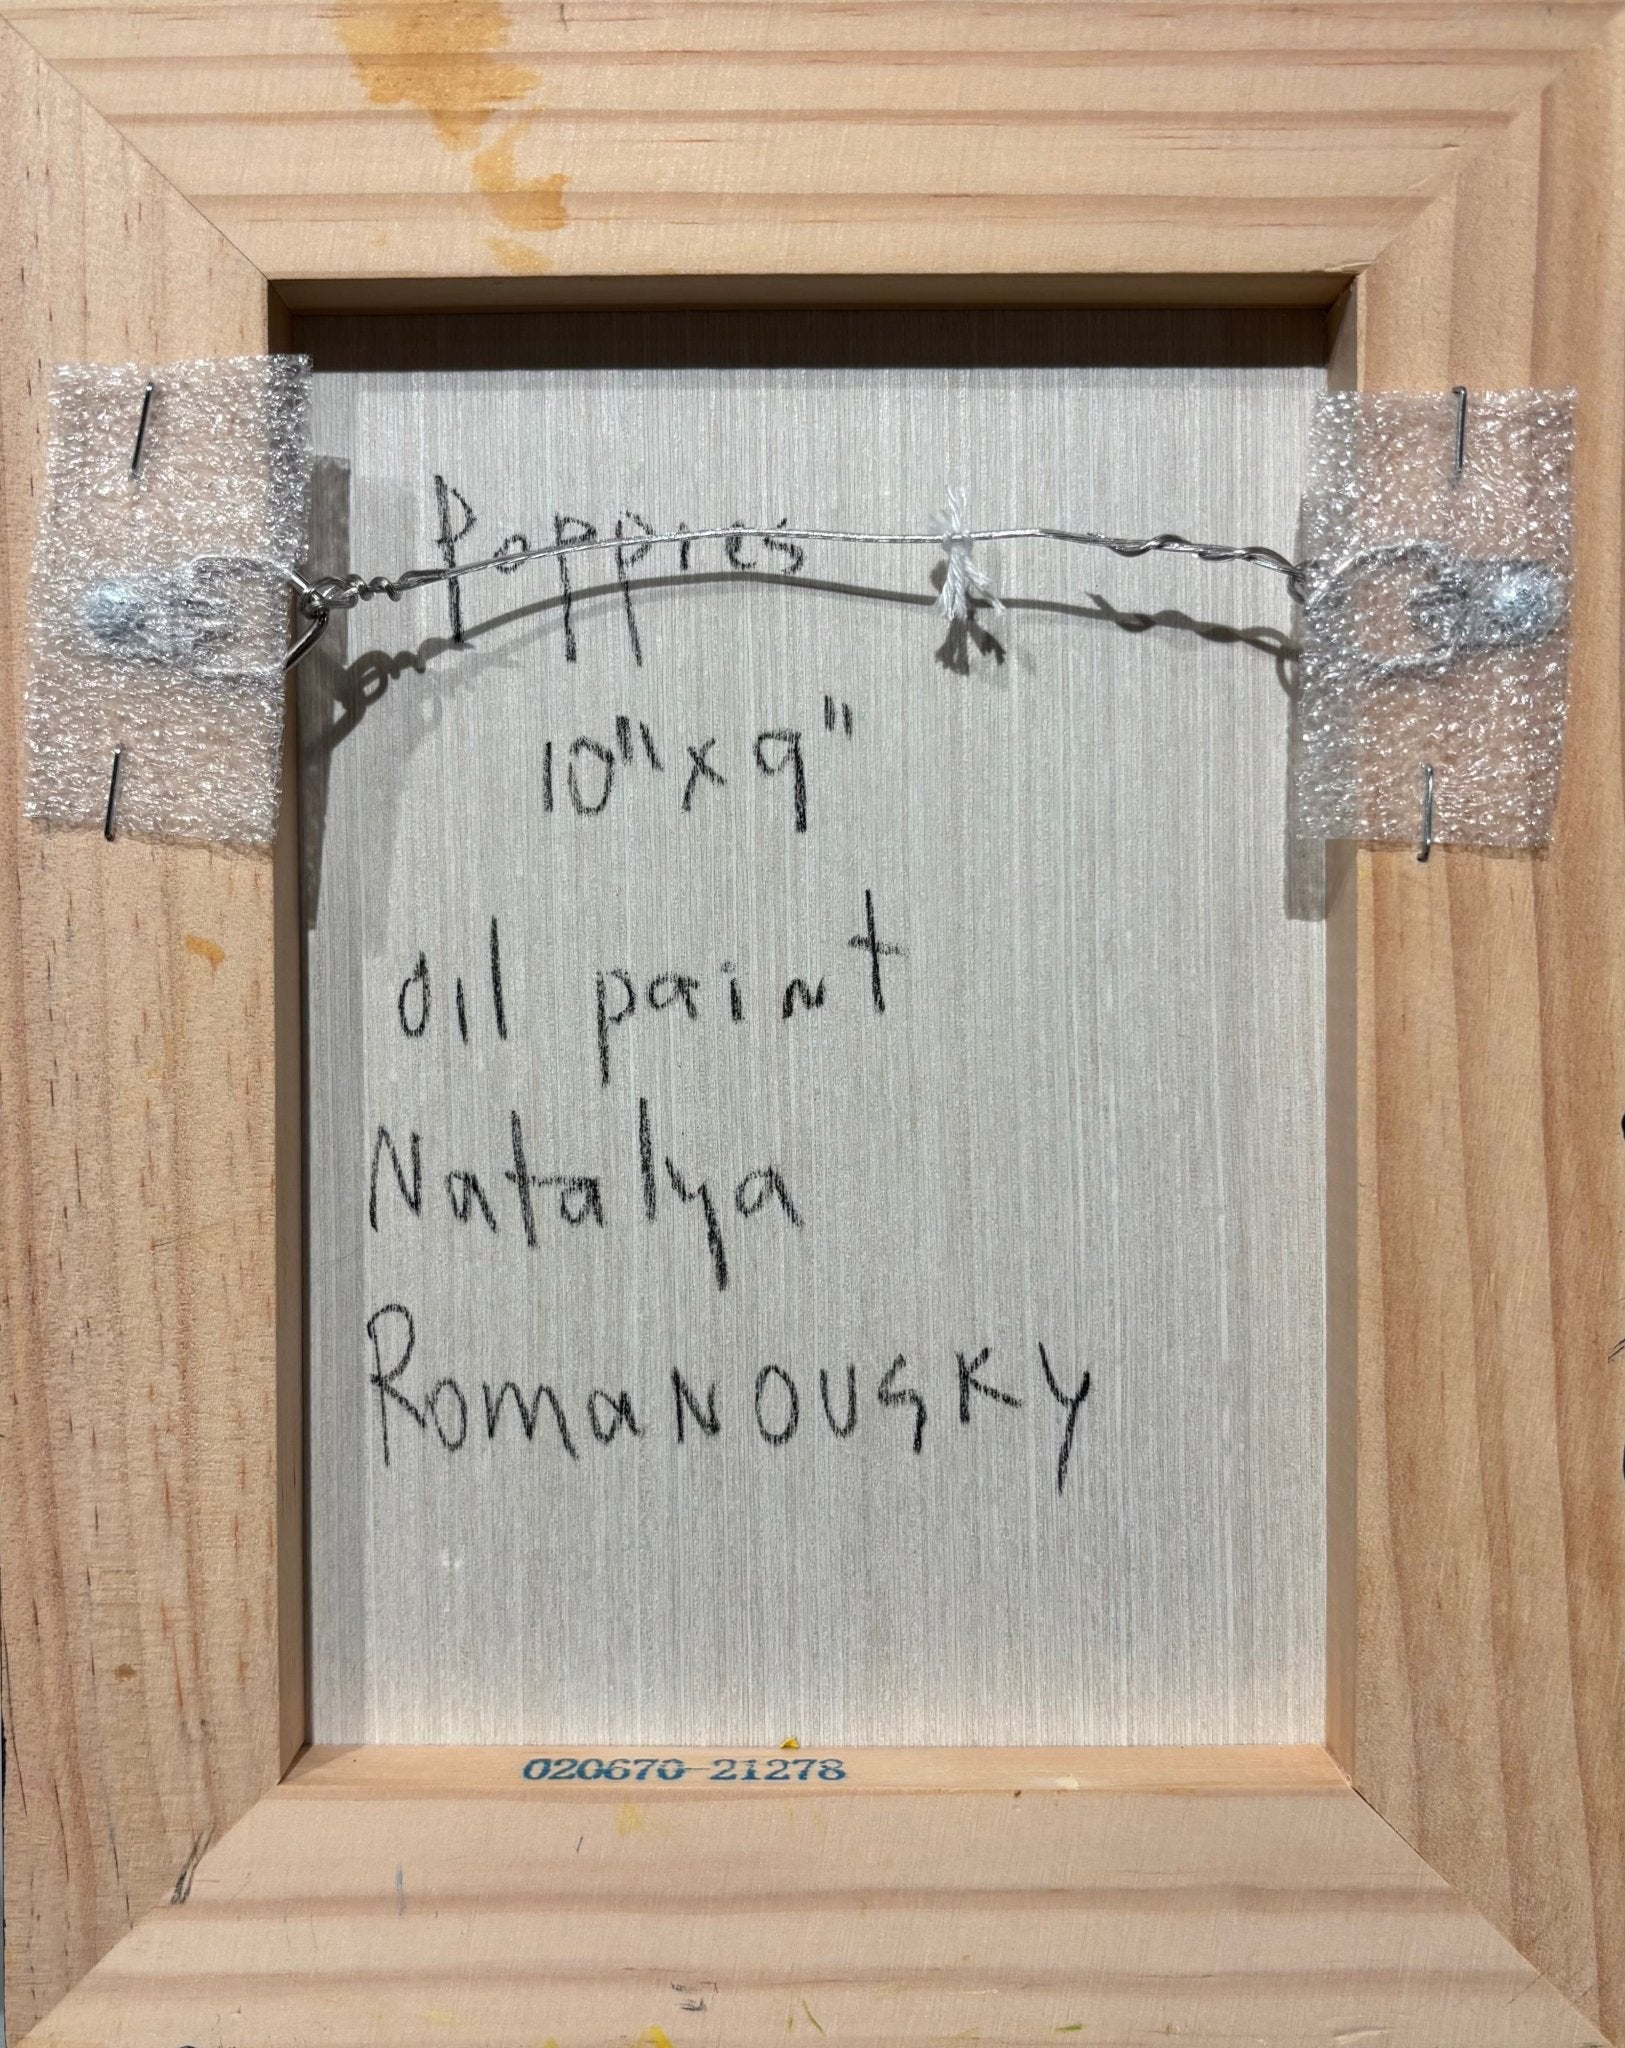 Poppies
10" x 9"
Oil paint
Natalya
Romanovsky
020670-21278